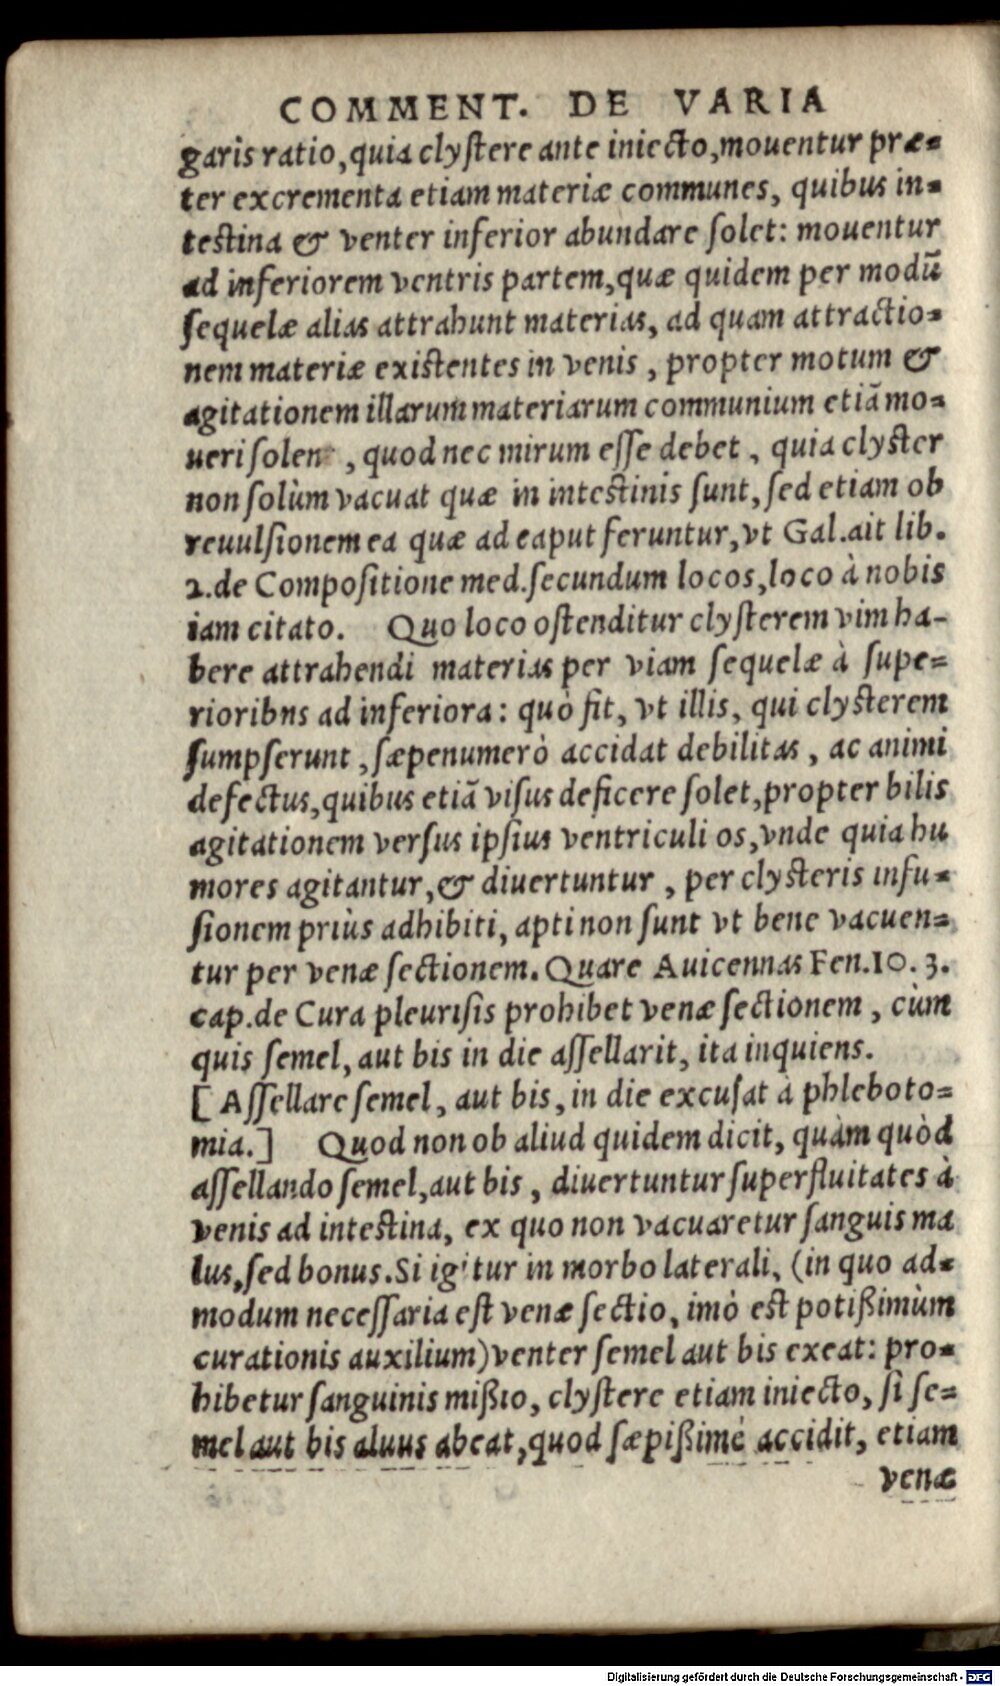 COMMENT. DE VARIA
garis ratio, quia clystere ante iniecto, mouentur præ-
ter excrementa etiam materiæ communes, quibus in-
testina & venter inferior abundare solet: mouentur
ad inferiorem ventris partem, quæ quidem per modũ
sequelæ alias attrahunt materias, ad quam attractio-
nem materiæ existentes in venis, propter motum &
agitationem illarum materiarum communium etiã mo-
ueri solen , quod nec mirum esse debet, quia clyster
non solùm vacuat quæ in intestinis sunt, sed etiam ob
reuulsionem ea quæ ad caput feruntur, vt Gal. ait lib.
2. de Compositione med. secundum locos, loco à nobis
iam citato. Quo loco ostenditur clysterem vim ha-
bere attrahendi materias per viam sequelæ à supe-
rioribns ad inferiora: quò fit, vt illis, qui clysterem
sumpserunt, sæpenumerò accidat debilitas, ac animi
defectus, quibus etiã visus deficere solet, propter bilis
agitationem versus ipsius ventriculi os, vnde quia hu
mores agitantur, & diuertuntur, per clysteris infu-
sionem priùs adhibiti, apti non sunt vt bene vacuen-
tur per venæ sectionem. Quare Auicennas Fen. 10. 3.
cap. de Cura pleurisis prohibet venæ sectionem, cùm
quis semel, aut bis in die assellarit, ita inquiens.
[Assellare semel, aut bis, in die excusat à phleboto-
mia.] Quod non ob aliud quidem dicit, quàm quòd
assellando semel, aut bis, diuertuntur superfluitates à
venis ad intestina, ex quo non vacuaretur sanguis ma
lus, sed bonus. Si igitur in morbo laterali, (in quo ad-
modum necessaria est venæ sectio, imò est potißimùm
curationis auxilium) venter semel aut bis exeat: pro-
hibetur sanguinis mißio, clystere etiam iniecto, si se-
mel aut bis aluus abeat, quod sæpißimè accidit, etiam
venæ
Digitalisierung gefördert durch die Deutsche Forschungsgemeinschaft - DFG